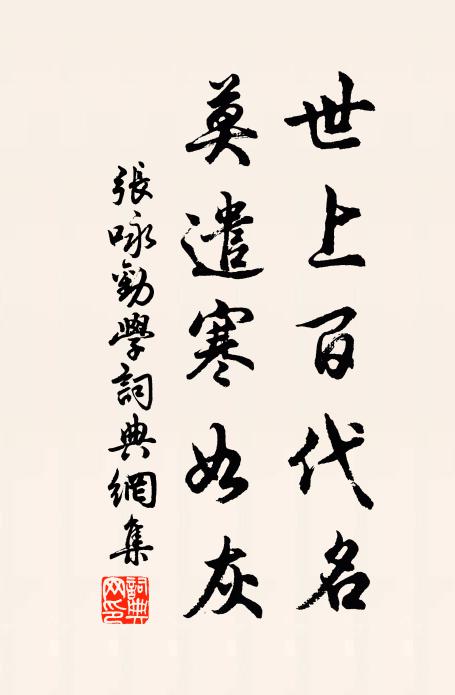 世上百代名
莫遣寒如灰
張咏勸學詞典網集
詞典網印